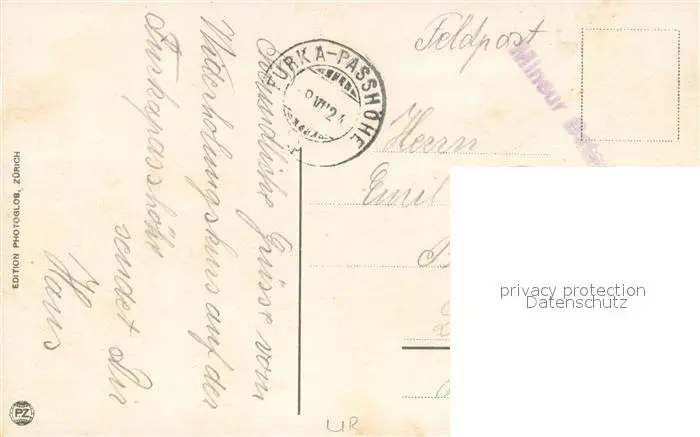 Freundliche Grüsse vom
Widerholungskurs auf der
Furkapasshöhe
sendet Dir
Hans
EDITION PHOTOGLOB, ZÜRICH
PZ
FURKA-PASSHÖHE
VII 24
Feldpost
Mineur
Herrn
Emil
privacy protection
Datenschutz
UR